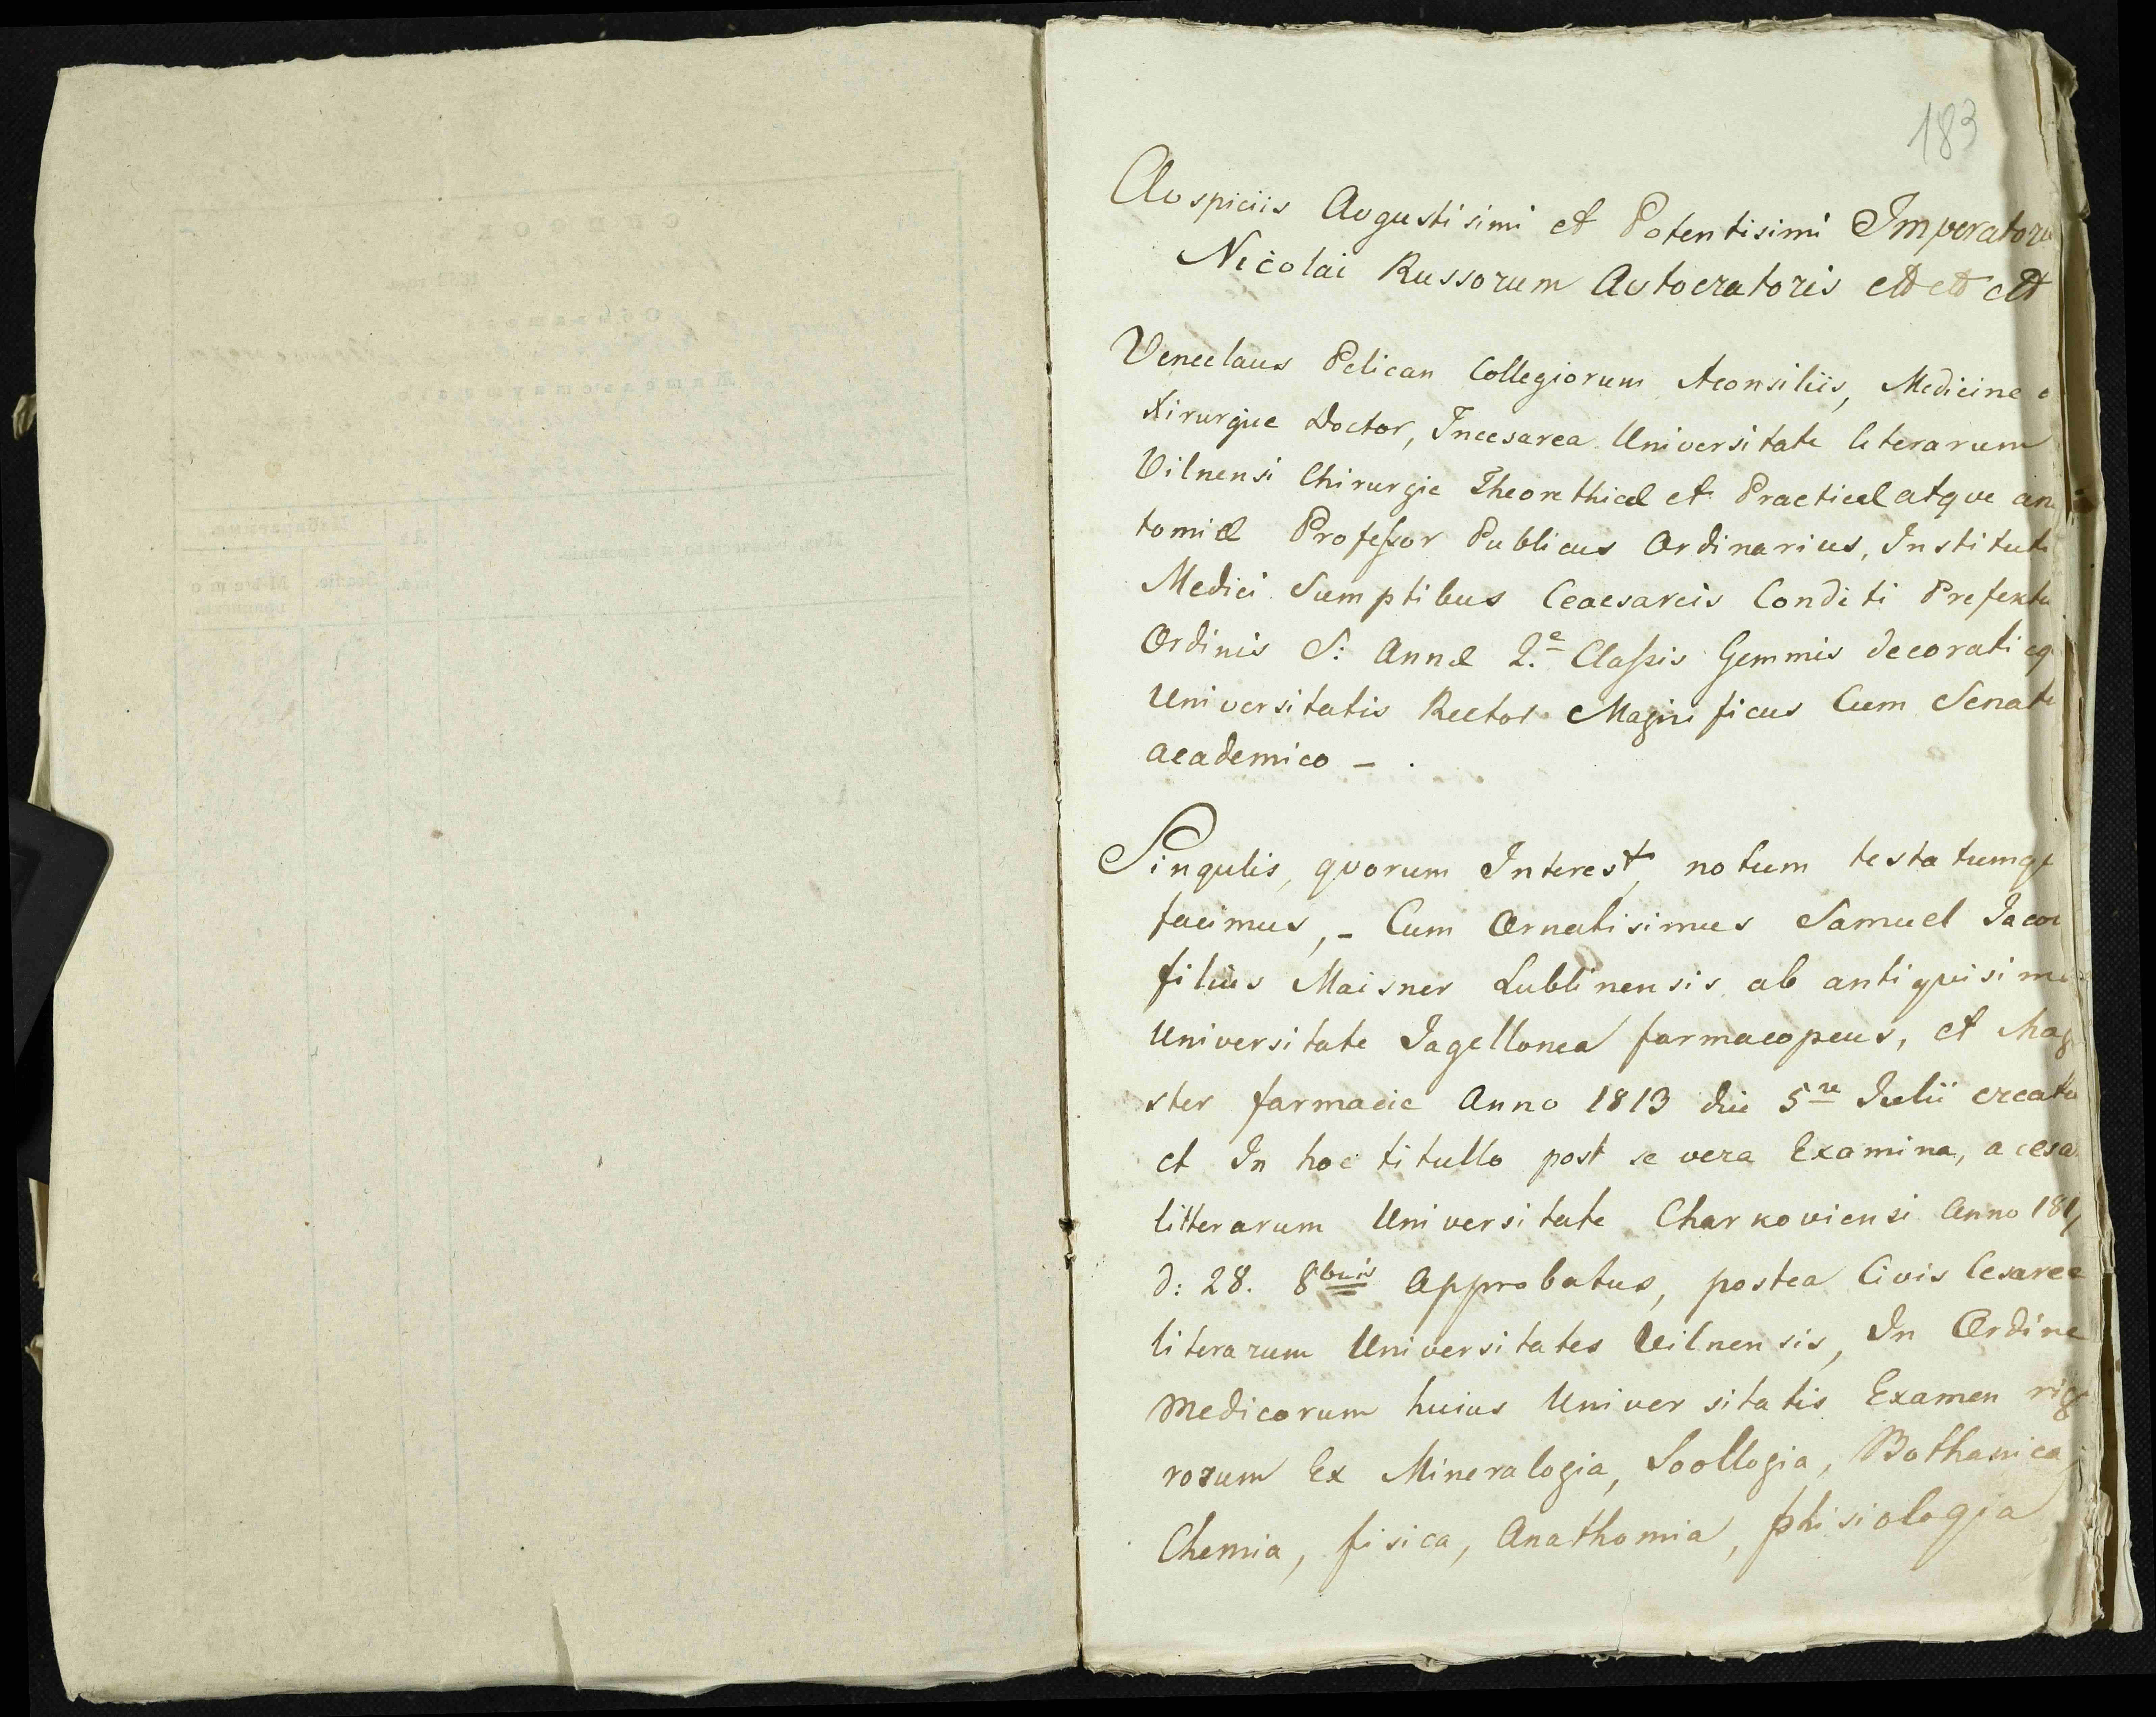 183
Auspiciis Augustisimi et Potentisimi Imperatoris
Nicolai Russorum Autocratoris et et et
Veneclaus Pelican Collegiorum Aconsiliis, Medicine e
Xirurgie Doctor, Incesarea Universitate literarum
Vilnensi Chirurgie Theorethicæ et Practicæ atque ana
tomiæ Profeſsor Publicus Ordinarius, Instituti
Medici Sumptibus Ceaesareis Conditi Prefektu
Ordinis S: Annæ 2.e Claſsis Gemmis decorati eq
Universitatis Rector Magnificus Cum Senatu
academico - .
Singulis, quorum Interest, notum testatumqe
facimus, - Cum Ornatisimus Samuel Jacob
filius Maisner Lublinensis ab antiquisima
Universitate Jagellonea farmacopeus, et Magi
ster farmacie Anno 1813 die 5ta Julii creatu
et In hoc titullo post severa Examina, a cesa
litterarum Universitate Charkoviensi Anno 181
d: 28. 8bris Approbatus, postea Civis Cesaree
literarum Universitates Vilnensis, In Ordine
Medicorum huius Universitatis Examen rigo
rosum Ex Mineralogia, Soollogia, Bothanica,
Chemia, fisica, Anathomia, phisiologia